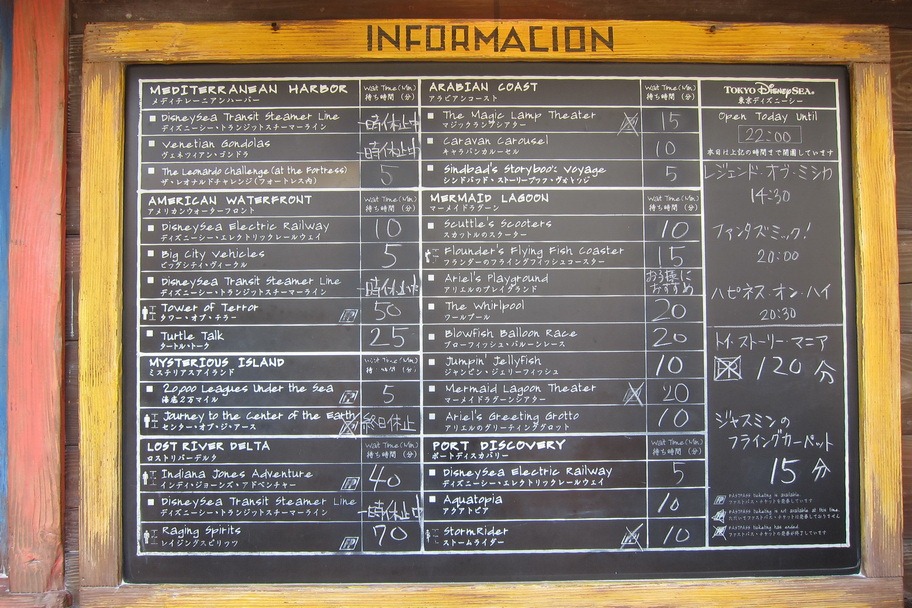 INFORMACION
MEDITERRANEAN HARBOR Wait Time (Min)
メディテレーニアンハーバー 待ち時間 (分)
DisneySea Transit Steamer Line 一時休止中
ディズニーシー・トランジットスチーマーライン
Venetian Gondolas 一時休止中
ヴェネツィアン・ゴンドラ
The Leonardo Challenge (at the Fortress) 5
ザ・レオナルドチャレンジ(フォートレス内)
AMERICAN WATERFRONT Wait Time (Min)
アメリカンウォーターフロント 待ち時間 (分)
DisneySea Electric Railway 10
ディズニーシー・エレクトリックレールウェイ
Big City Vehicles 5
ビッグシティ・ヴィークル
DisneySea Transit Steamer Line 一時休止中
ディズニーシー・トランジットスチーマーライン
Tower of Terror FP 50
タワー・オブ・テラー
Turtle Talk 25
タートル・トーク
MYSTERIOUS ISLAND Wait Time (Min)
ミステリアスアイランド 待ち時間 (分)
20,000 Leagues Under the Sea FP 5
海底2万マイル
Journey to the Center of the Earth 終日休止
センター・オブ・ジ・アース
LOST RIVER DELTA Wait Time (Min)
ロストリバーデルタ 待ち時間 (分)
Indiana Jones Adventure FP 40
インディ・ジョーンズ・アドベンチャー
DisneySea Transit Steamer Line 一時休止中
ディズニーシー・トランジットスチーマーライン
Raging Spirits FP 70
レイジングスピリッツ
ARABIAN COAST Wait Time (Min)
アラビアンコースト 待ち時間 (分)
The Magic Lamp Theater 15
マジックランプシアター
Caravan Carousel 10
キャラバンカルーセル
Sindbad's Storybook Voyage 5
シンドバッド・ストーリーブック・ヴォヤッジ
MERMAID LAGOON Wait Time (Min)
マーメイドラグーン 待ち時間 (分)
Scuttle's Scooters 10
スカットルのスクーター
Flounder's Flying Fish Coaster 15
フランダーのフライングフィッシュコースター
Ariel's Playground お子様におすすめ
アリエルのプレイグランド
The Whirlpool 20
ワールプール
Blowfish Balloon Race 20
ブローフィッシュ・バルーンレース
Jumpin' Jellyfish 10
ジャンピン・ジェリーフィッシュ
Mermaid Lagoon Theater 20
マーメイドラグーンシアター
Ariel's Greeting Grotto 10
アリエルのグリーティンググロット
PORT DISCOVERY Wait Time (Min)
ポートディスカバリー 待ち時間 (分)
DisneySea Electric Railway 5
ディズニーシー・エレクトリックレールウェイ
Aquatopia 10
アクアトピア
StormRider 10
ストームライダー
TOKYO DisneySEA
東京ディズニーシー
Open Today Until
22:00
本日は上記の時間まで開園しています
レジェンド・オブ・ミシカ
14:30
ファンタズミック!
20:00
ハピネス・オン・ハイ
20:30
トイ・ストーリー・マニア
120 分
ジャスミンの
フライングカーペット
15 分
FASTPASS ticketing is available.
ファストパス・チケットを発券しています
FASTPASS ticketing is not available at this time.
ただいまファストパス・チケットは発券しておりません
FASTPASS ticketing has ended.
ファストパス・チケットの発券が終了しています